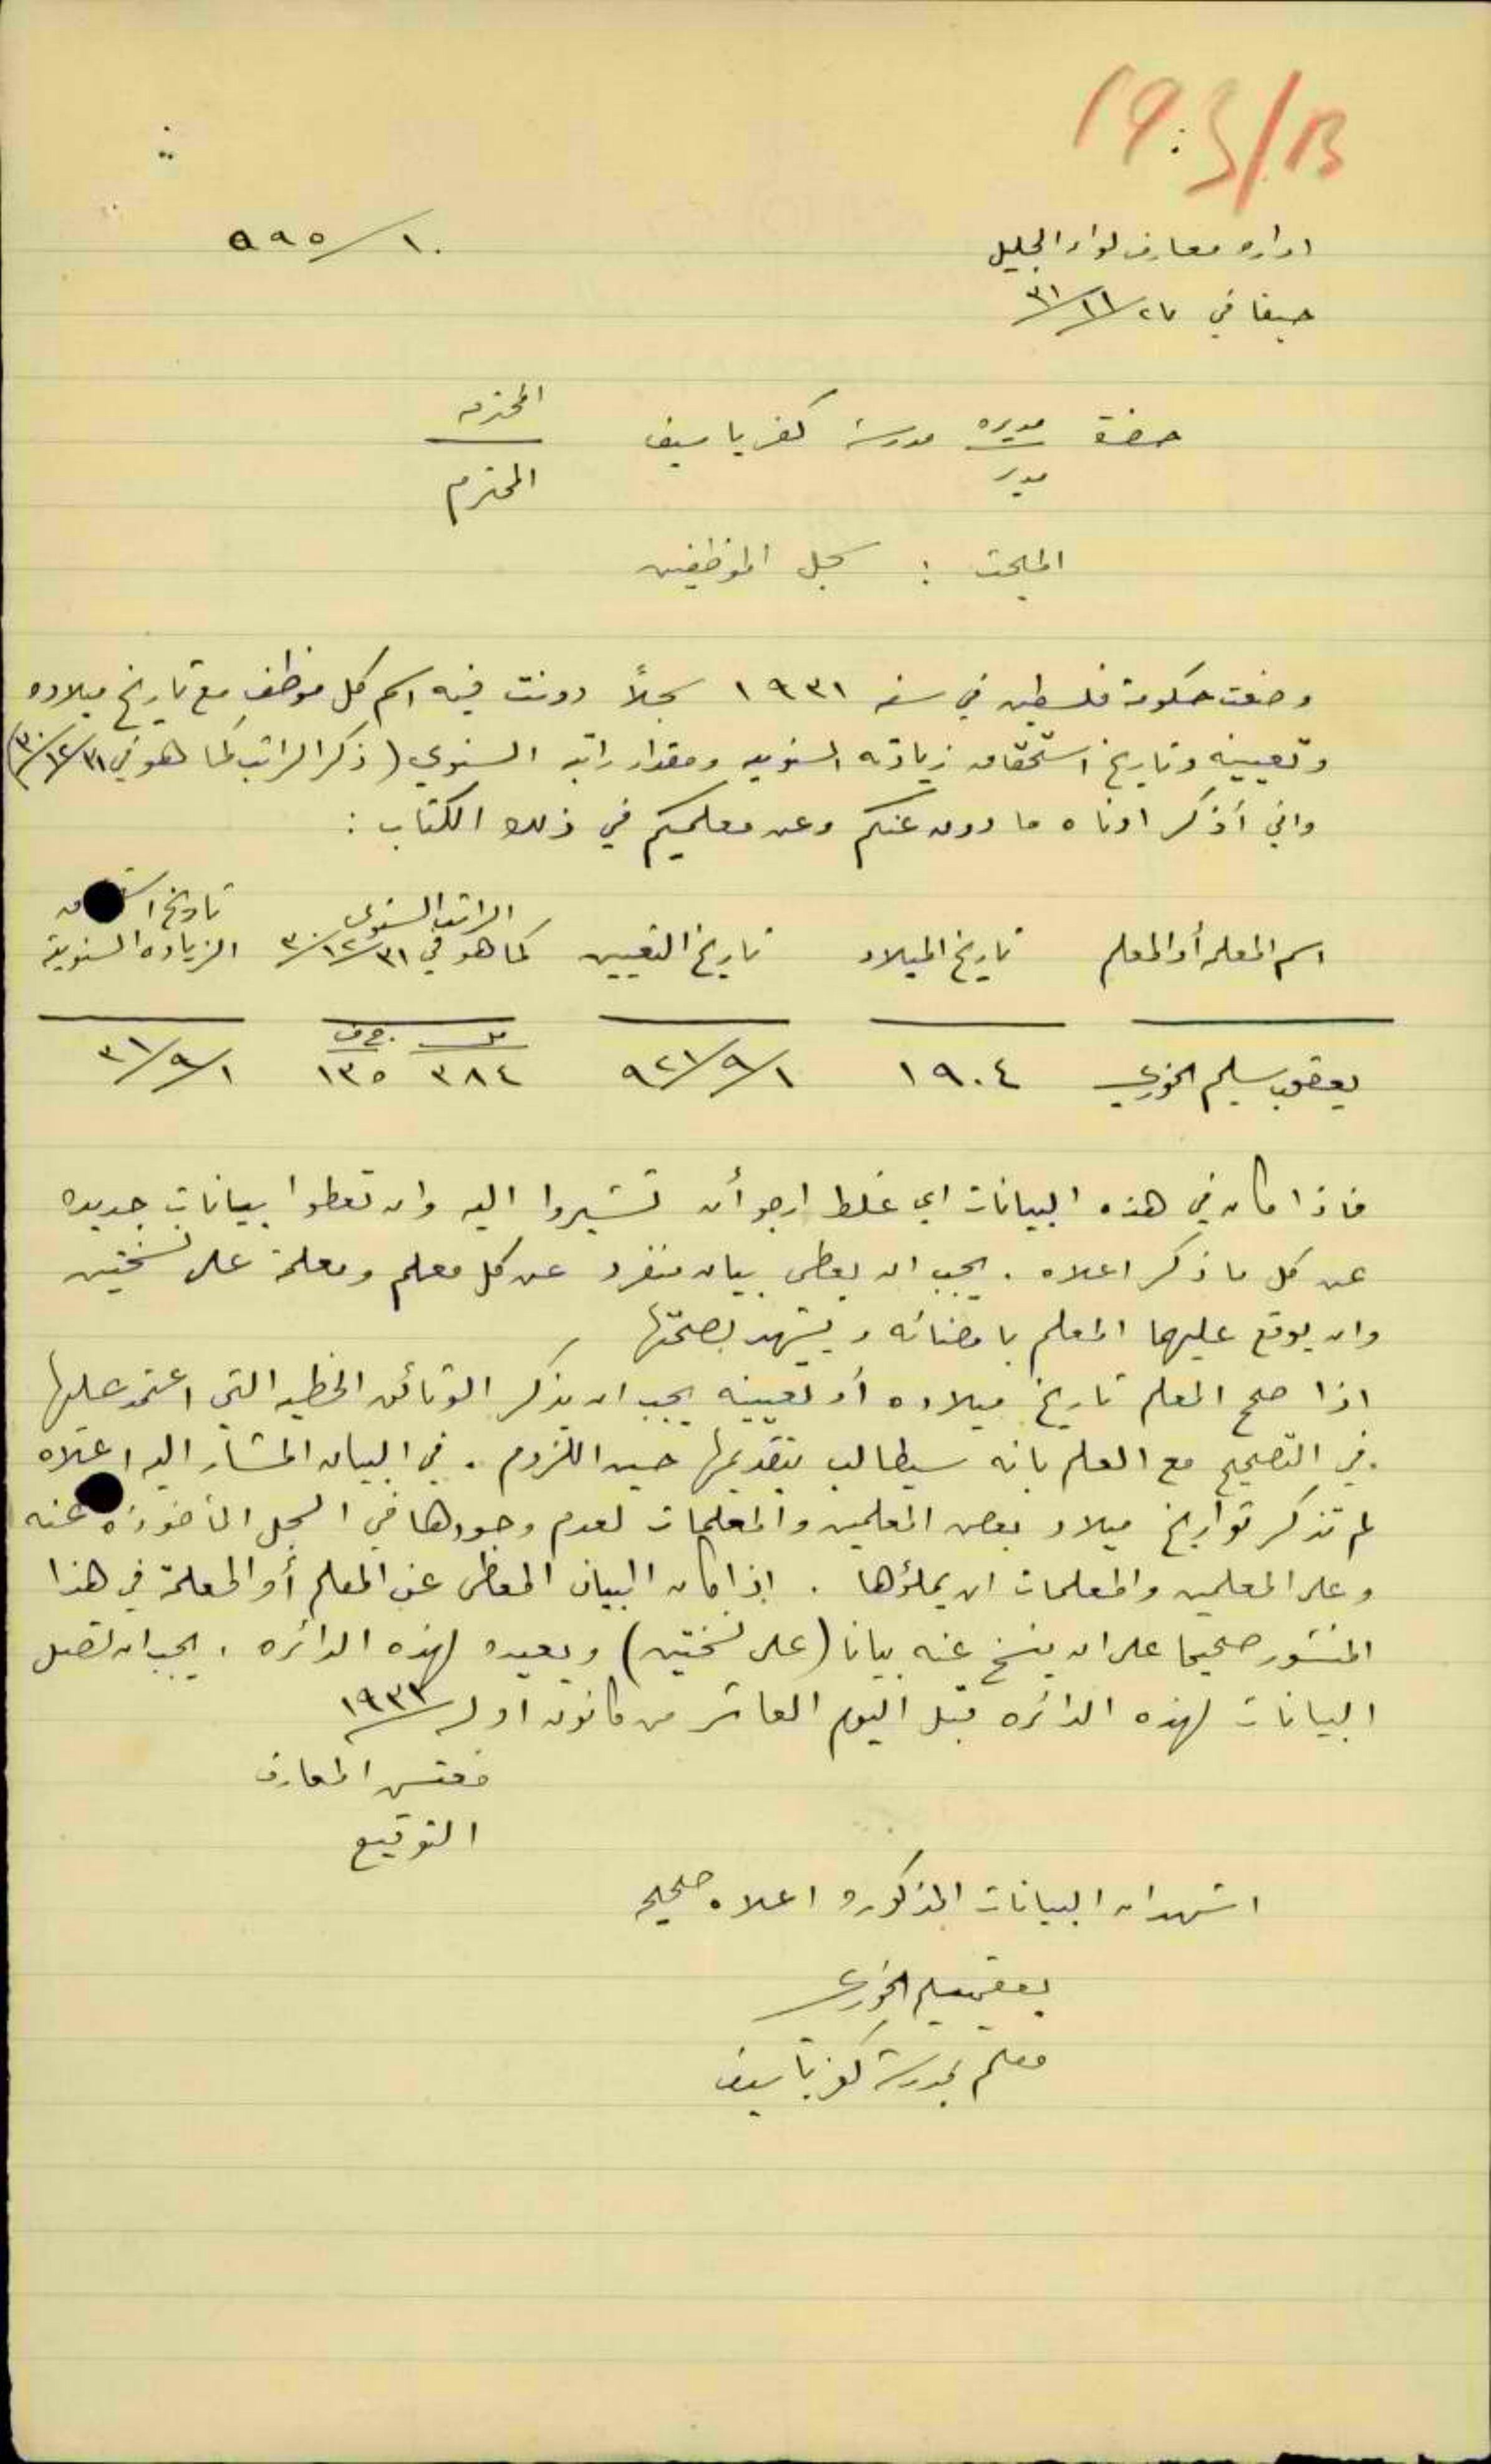 19:3/B
اداره معارف لواء الجليل
١٠/٥٩٥
حيفا في ٢٧/١١/٣١
حضرة مديره مدرسة كفر ياسيف المحترمه
مدير المحترم
المبحث : سجل الموظفين
وضعت حكومة فلسطين في سنه ١٩٣١ سجلاً دونت فيه اسم كل موظف مع تاريخ ميلاده
وتعيينه وتاريخ استحقاق زيادته السنويه ومقدار راتبه السنوي (ذكر الراتب كما هو في ٣١/١٢/٣٠)
واني أذكر ادناه ما دون عنكم وعن معلميكم في ذلك الكتاب :
اسم المعلمة أو المعلم تاريخ الميلاد تاريخ التعيين الراتب السنوي كما هو في ٣١/١٢/٣٠ تاريخ الزياده السنوية
مل ج ف
يعقوب سليم الخوري ١٩٠٤ ١/٩/٩٢١ ٣٨٤ ١٣٥ ١/٩/٣١
فاذا كان في هذه البيانات اي غلط ارجو أن تشيروا اليه وان تعطوا بيانات جديده
عن كل ما ذكر اعلاه . يجب ان يعطى بيان منفرد عن كل معلم ومعلمة على نسختين
وان يوقع عليها المعلم بامضائه ويشهد بصحتها
اذا صحح المعلم تاريخ ميلاده أو تعيينه يجب ان يذكر الوثائق الخطيه التي اعتمد عليها
في التصحيح مع العلم بانه سيطالب بتقديمها حين اللزوم . في البيان المشار اليه اعلاه
لم تذكر تواريخ ميلاد بعض المعلمين والمعلمات لعدم وجودها في السجل المأخوذه عنه
وعلى المعلمين والمعلمات ان يملؤها . اذا كان البيان المعطى عن المعلم أو المعلمة في هذا
المنشور صحيحا على ان ينسخ عنه بيانا (على نسختين) ويعيده لهذه الدائره . يجب ان تصل
البيانات لهذه الدائره قبل اليوم العاشر من كانون اول
مفتش المعارف
التوقيع
اشهد ان البيانات المذكوره اعلاه صحيحه
يعقوب سليم الخوري
معلم بمدرسة كفر ياسيف